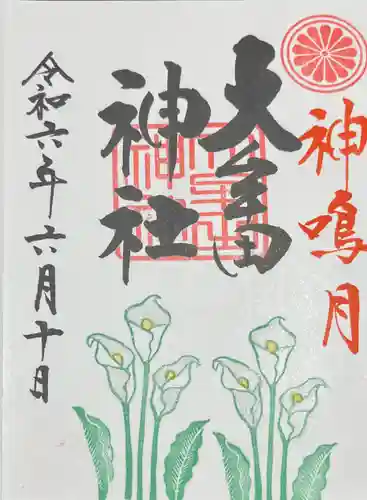 神鳴月
大
神社
令和六年六月十日